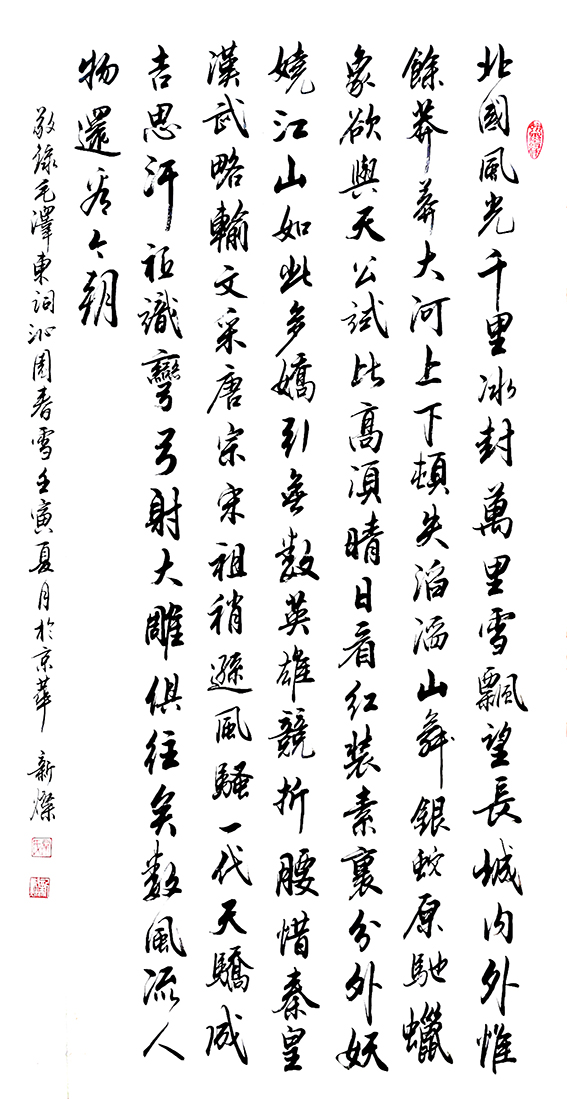 北國風光千里冰封萬里雪飄望長城内外惟
餘莽莽大河上下頓失滔滔山舞銀蛇原馳蠟
象欲與天公試比高須晴日看红裝素裹分外妖
嬈江山如此多嬌引無數英雄競折腰惜秦皇
漢武略輸文采唐宗宋祖稍遜風騷一代天驕成
吉思汗祗識彎弓射大雕俱往矣數風流人
物還看今朝
敬録毛澤東詞沁園春雪壬寅夏月於京華 新燦